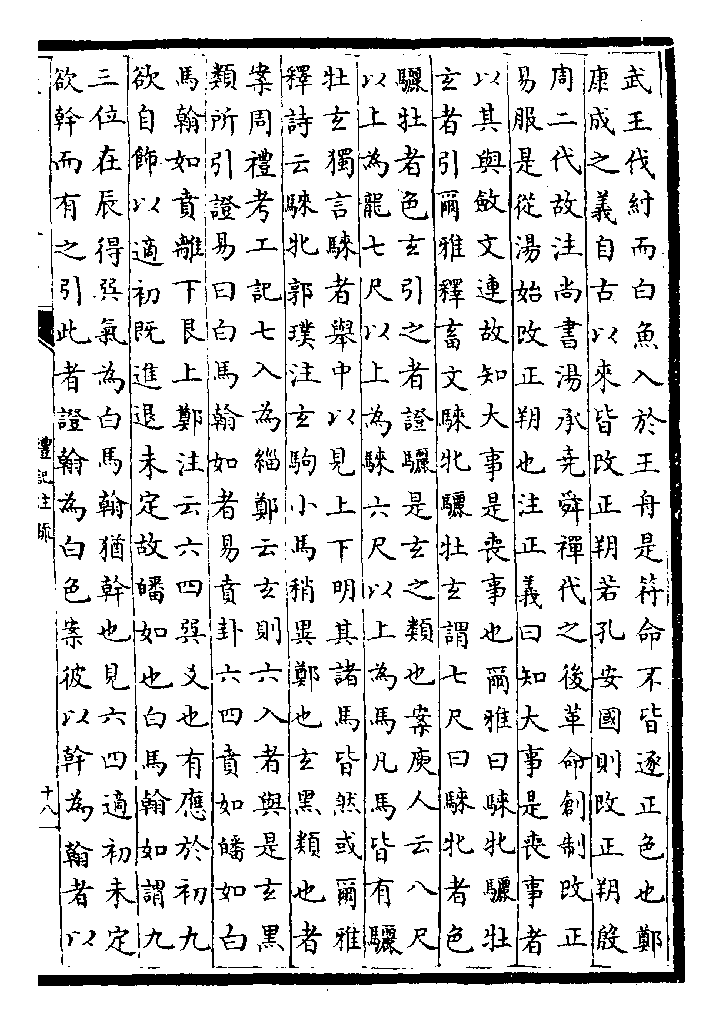 武王伐紂而白魚入於王舟是符命不皆逐正色也鄭
康成之義自古以來皆改正朔若孔安國則改正朔殷
周二代故注尚書湯承堯舜禪代之後革命創制改正
易服是從湯始改正朔也注正義曰知大事是喪事者
以其與斂文連故知大事是喪事也爾雅曰騋牝驪牡
玄者引爾雅釋畜文騋牝驪牡玄謂七尺曰騋牝者色
驪牡者色玄引之者證驪是玄之類也案庾人云八尺
以上為龍七尺以上為騋六尺以上為馬凡馬皆有驪
牡玄獨言騋者舉中以見上下明其諸馬皆然或爾雅
釋詩云騋牝郭璞注玄駒小馬稍異鄭也玄黑類也者
案周禮考工記七入為緇鄭云玄則六入者與是玄黑
類所引證易曰白馬翰如者易賁卦六四賁如皤如白
馬翰如賁離下艮上鄭注云六四巽爻也有應於初九
欲自飾以適初既進退未定故皤如也白馬翰如謂九
三位在辰得巽氣為白馬翰猶幹也見六四適初未定
欲幹而有之引此者證翰為白色案彼以幹為翰者以
禮記注疏
十八